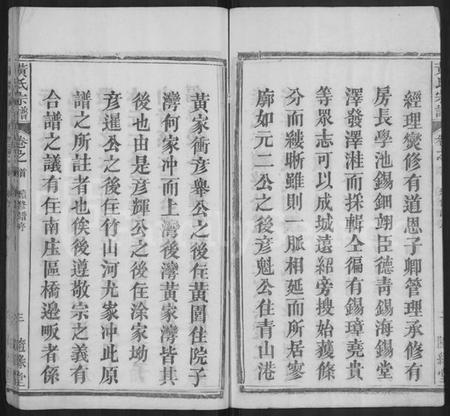 經理燮修有道恩子卿管理承修有
房長學池錫鈿翊臣德青錫海錫堂
澤發澤溎而採輯仝徧有錫璋堯貴
等眾志可以成城遠紹旁搜始獲條
分而縷晰雖則一脈相延而所居寥
廓如元二公之後彥魁公住青山港
黃家衝彥舉公之後住黃圍住院子
灣何家冲而上灣後灣黃家灣皆其
後也由是彥輝公之後住涂家坳
彥暹公之後住竹山河尤家冲此原
譜之所註者也俟後遵敬宗之義有
合譜之議有住南庄區橋邉畈者係
黃氏宗譜
卷之首